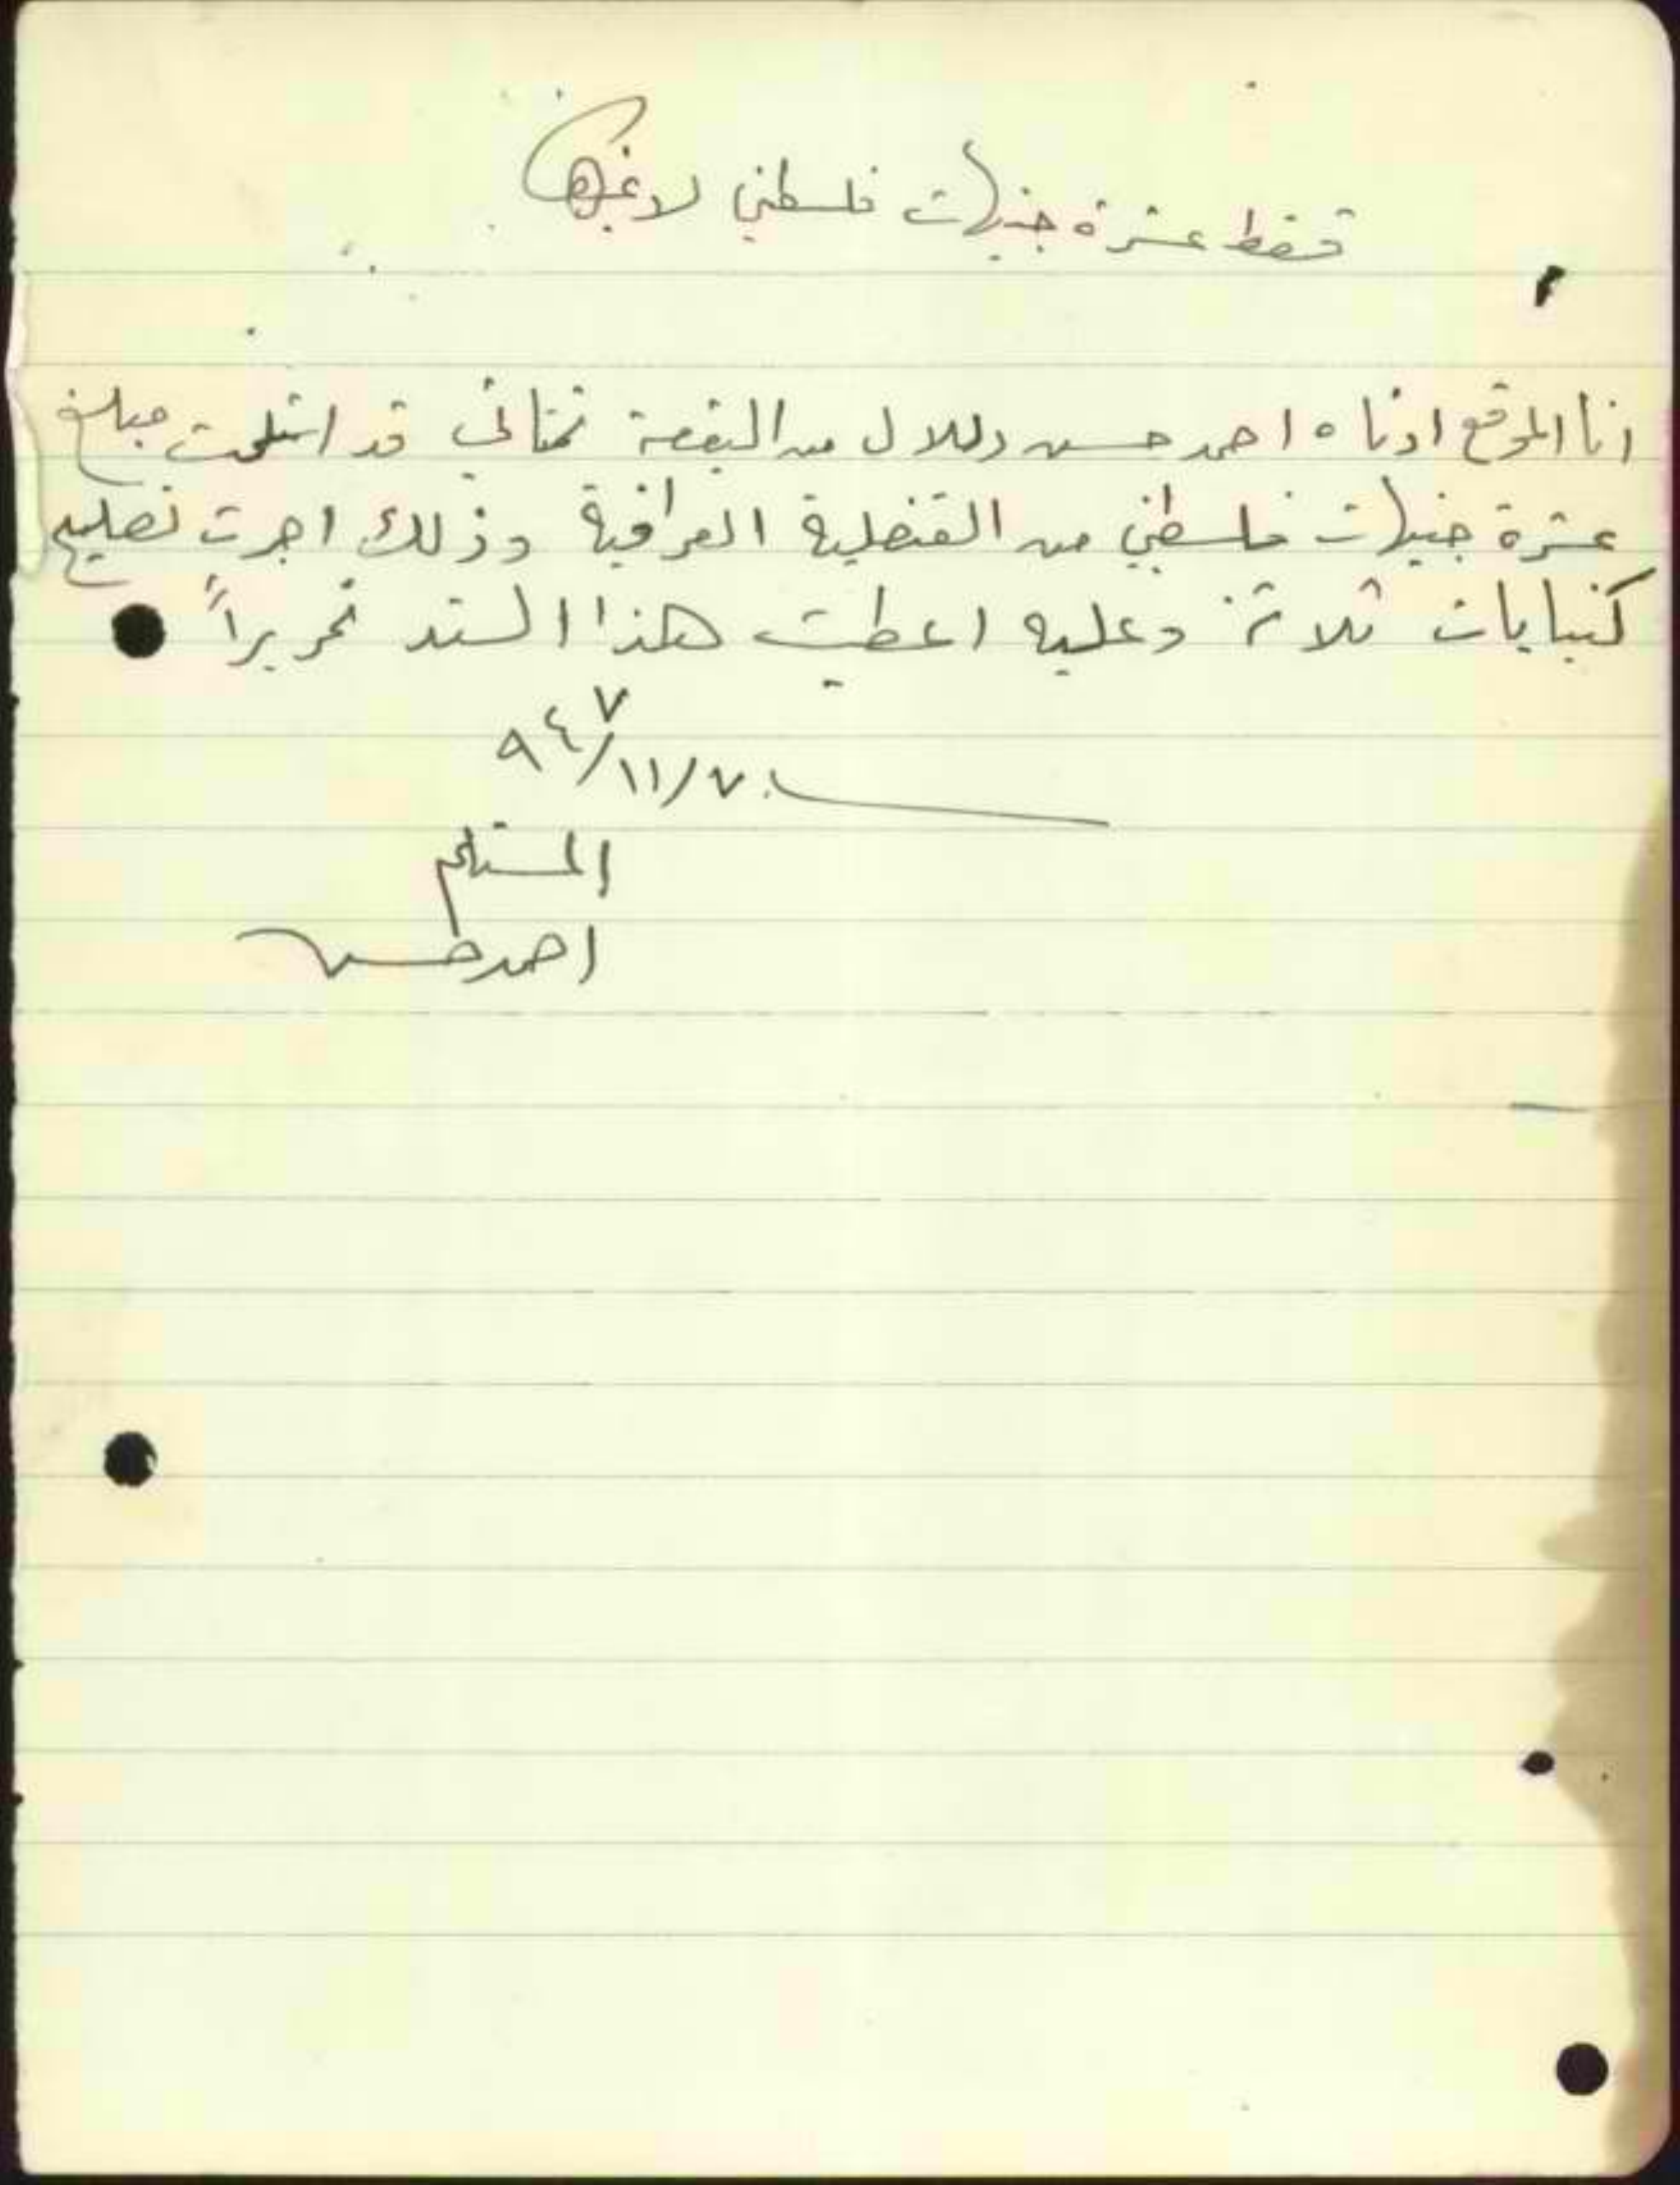 فقط عشرة جنيهات فلسطيني لا غيرها
انا الموقع ادناه احمد حسن دلال من البقعة تحتاني قد استلمت مبلغ
عشرة جنيهات فلسطيني من القنصلية العراقية وذلك اجرت تصليح
كنبايات ثلاثة وعليه اعطيت هذا السند تحريراً
٩٤٧/١١/٧
المستلم
احمد حسن